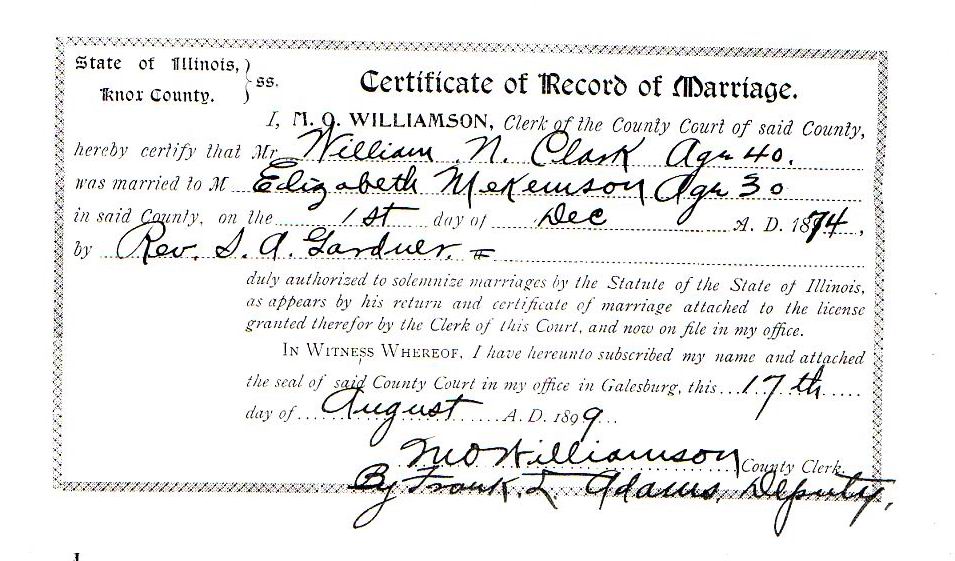 State of Illinois,
Knox County.
} ss.
Certificate of Record of Marriage.
I, M. O. WILLIAMSON, Clerk of the County Court of said County,
hereby certify that Mr William N. Clark Age 40.
was married to M Elizabeth McKemson Age 30
in said County, on the 1st day of Dec A. D. 1874,
by Rev. S. A. Gardner.
duly authorized to solemnize marriages by the Statute of the State of Illinois,
as appears by his return and certificate of marriage attached to the license
granted therefor by the Clerk of this Court, and now on file in my office.
IN WITNESS WHEREOF, I have hereunto subscribed my name and attached
the seal of said County Court in my office in Galesburg, this 17th
day of August A. D. 1899
M O Williamson County Clerk.
By Frank L Adams, Deputy.